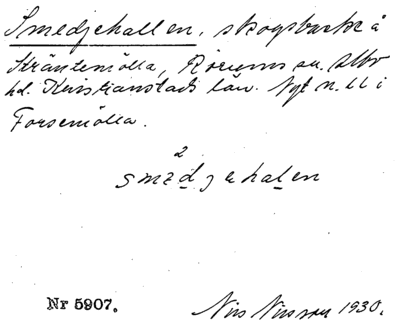 Smedjehallen, skogsbacke å
Kräntemölla, Rörums sn. Albo
hd. Kristianstads län. Nyt n. ll i
Forsemölla.
2
smɛdjehalen
Nr 5907.
Nils Nilsson 1930.